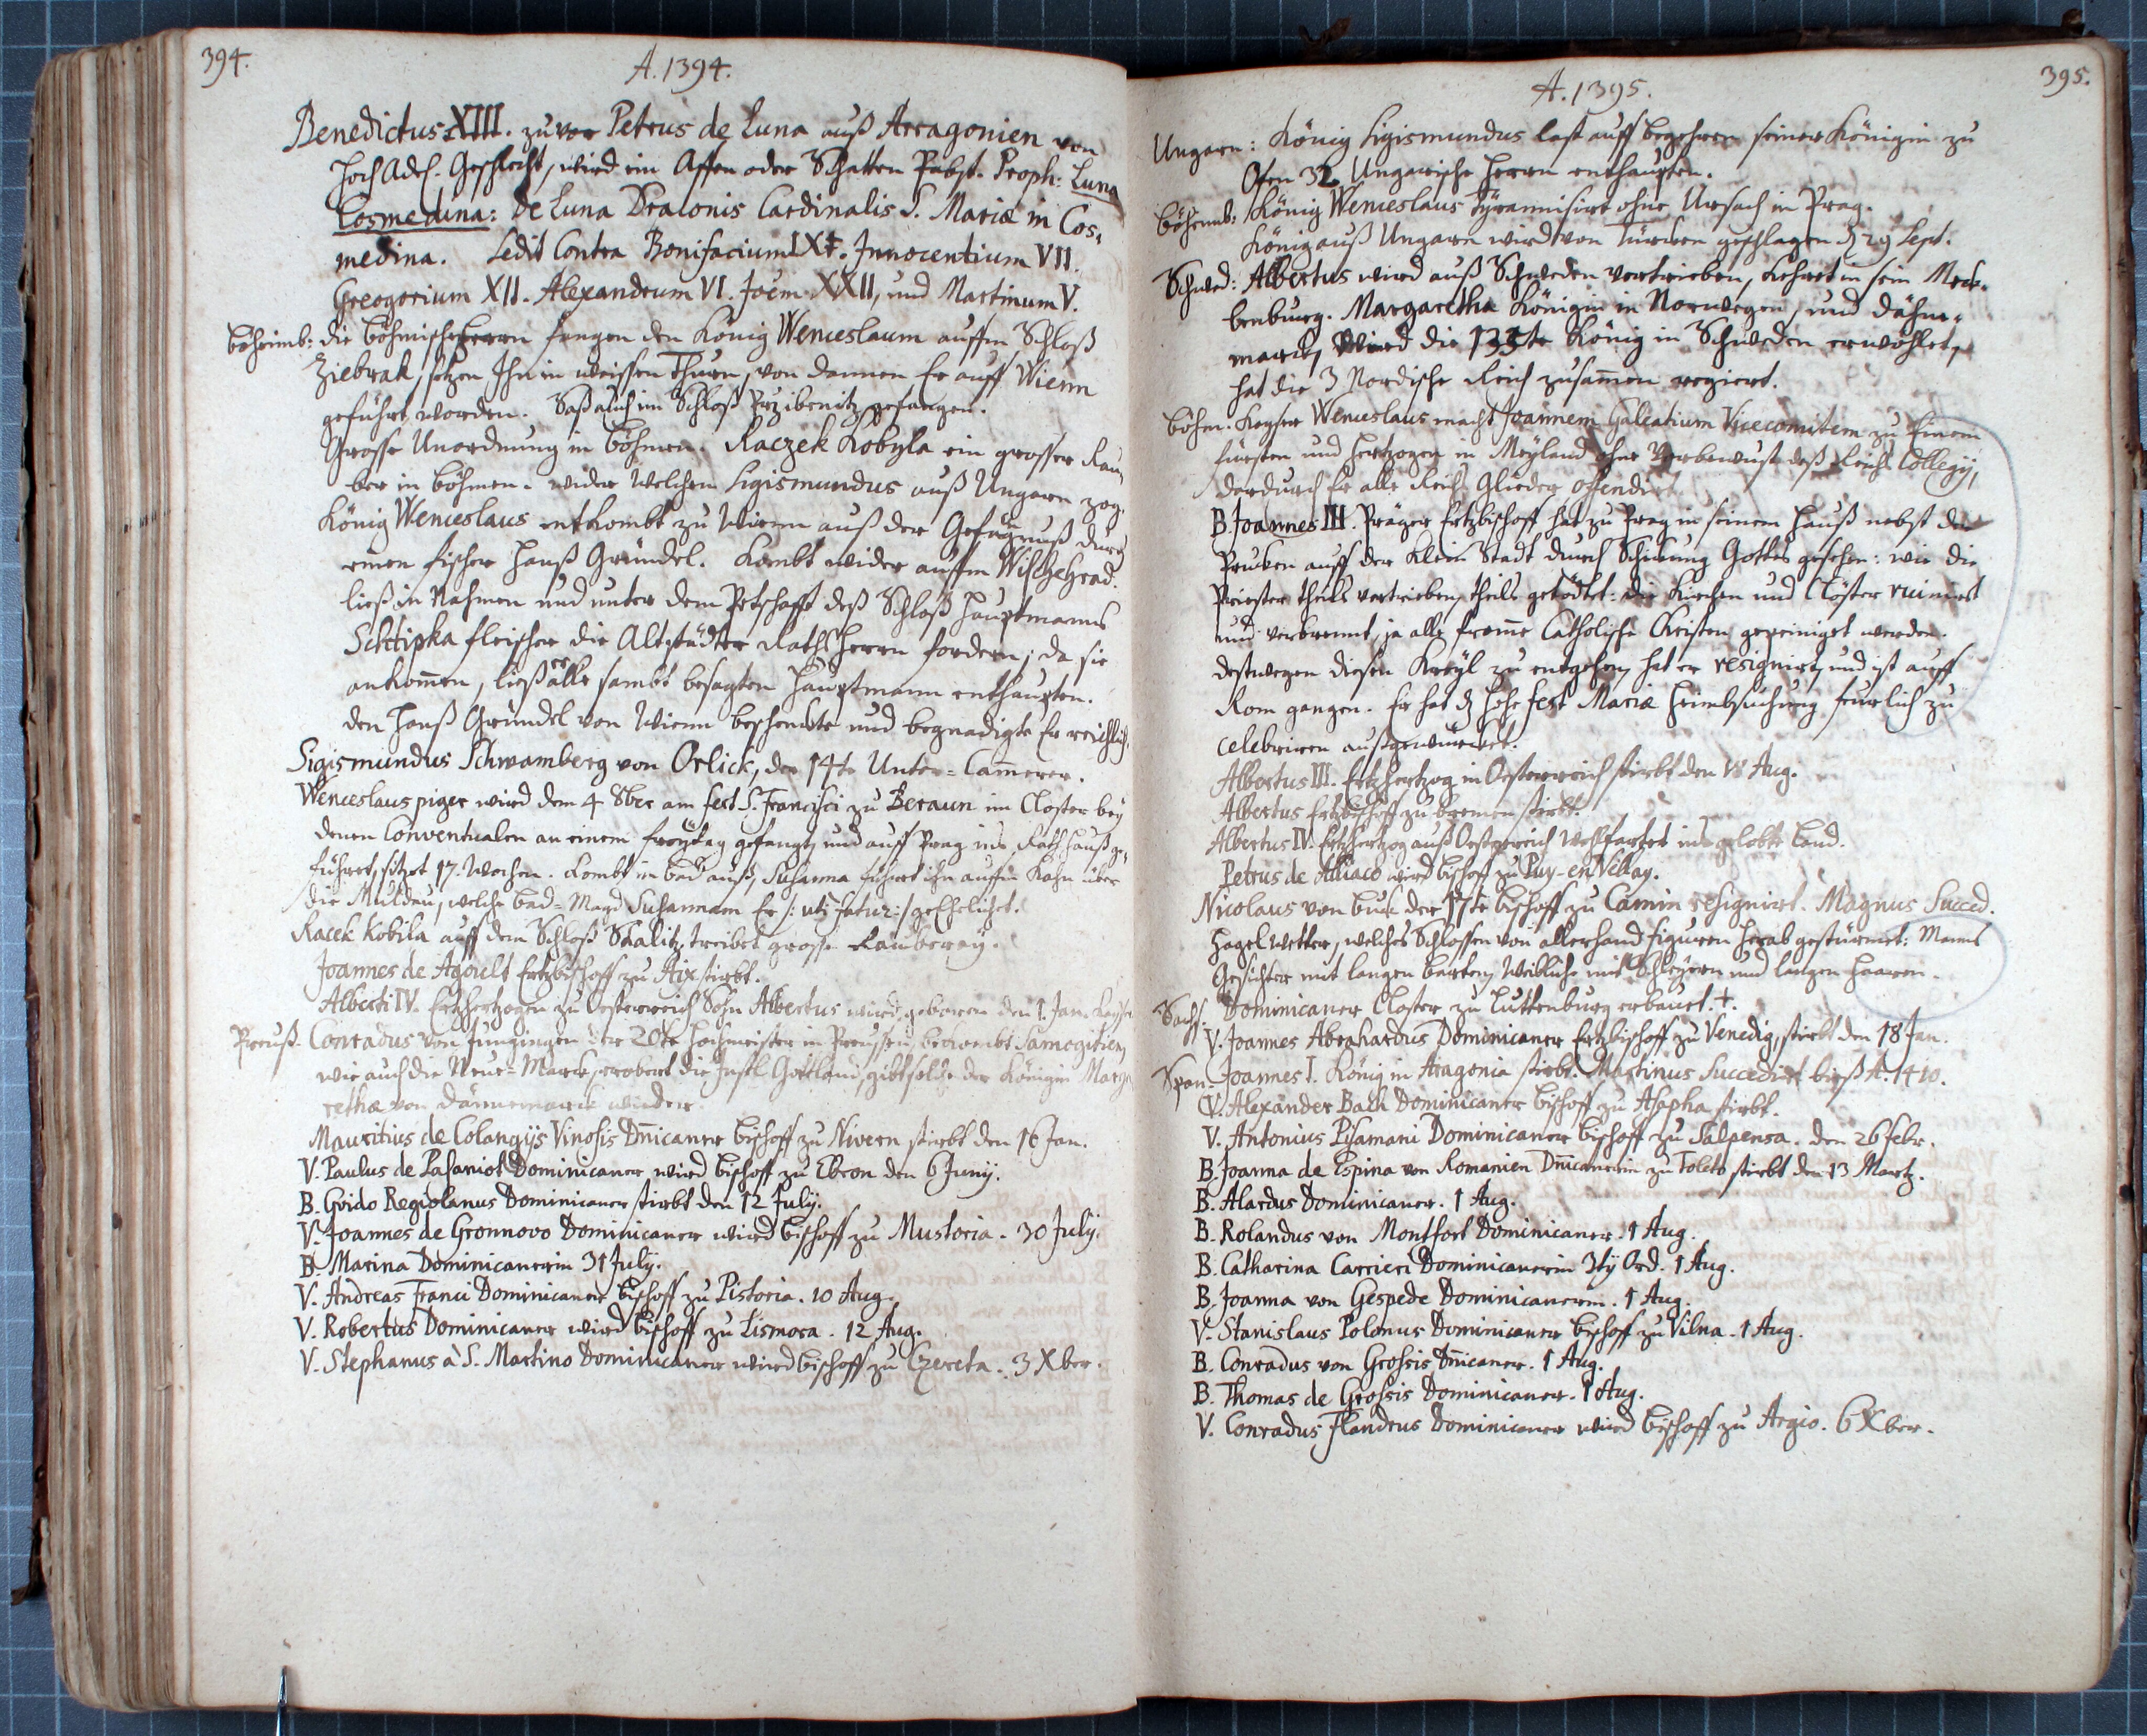 394.
A. 1394.
Benedictus XIII. zuvor Petrus de Luna auß Arragonien von
Hoch Adel. Geschlecht, wird ein Affen oder Schatten Pabst. Proph: Luna
Cosmedina: De Luna Draconis Cardinalis S. Mariæ in Cos-
medina. Sedit Contra Bonifacium IX. Innocentium VII.
Gregorium XII. Alexandrum VI. Joem XXII, und Martinum V.
Böheimb: die Böhmische Herrn fangen den König Wenceslaum auffm Schloß
Ziebrak, setzen Ihn in weissen Thurn, von dannen Er auff Wienn
geführt worden. Saß auch im Schloß Przibenitz gefangen.
Grosse Unordnung in Böhmen. Raczek Kobyla ein grosser Rau-
ber in Böhmen. wider welchen Sigismundus auß Ungarn zog.
König Wenceslaus entkombt zu Wienn auß der Gefängnuß durch
einen fischer Hanß Gründel. Kombt wider auffm Wischehrad.
ließ in Nahmen und unter dem Petschafft deß Schloß Hauptmanns
Schtipka fleischer die Altstädter Raths Herrn fordern; da sie
ankommen, ließ er alle sambt besagten Hauptmann enthaupten.
den Hanß Gründel von Wienn beschenckte und begnadigte Er reichlich.
Sigismundus Schwamberg von Orlick, der 14te Unter-Cammerer.
Wenceslaus piger wird dem 4 8ber am fest S. Francisci zu Beraun im Closter bey
denen Conventualen an einem freytag gefangen, und auff Prag ins Rathhauß ge-
führet, sitzet 17. Wochen. Kombt im bad auß, Susanna führet ihn auffm Kahn über
die Muldau, welche bad-Magd Susannam Er /: uti fatur :/ geEhelichet.
Racek Kobila auff dem Schloß Skalitz, treibet grosse Rauberey.
Joannes de Agoult Ertzbischoff zu Aix stirbt.
Alberti IV. Ertzhertzogen zu Oesterreich Sohn Albertus wird gebohren den 1. Jan.
Preuß. Conradus von Jungingen der 20te Hochmeister in Preussen, bekombt Samogitien,
wie auch die Neue-Marck, erobert die Insel Gottland, gibt solche der Königin Marga-
rethæ von Dännemarck wieder.
Mauritius de Colangys Vinosis Dnicaner Bischoff zu Nivern stirbt den 16 Jan.
V. Paulus de Pasaniot Dominicaner wird Bischoff zu Ebron den 6 Junij.
B. Gvido Regiolanus Dominicaner stirbt den 12 July.
V. Joannes de Gronnovo Dominicaner wird Bischoff zu Mustoria. 30 July.
B. Marina Dominicanerin 31 July.
V. Andreas Franci Dominicaner Bischoff zu Pistoria. 10 Aug.
V. Robertus Dominicaner wird Bischoff zu Lismora. 12 Aug.
V. Stephanus à S. Martino Dominicaner wird Bischoff zu Czereta. 3 Xber.
395.
A. 1395.
Ungarn: König Sigismundus last auff begehren seiner Königin zu
Ofen 32 Ungarische Herrn enthaupten.
Böheimb: König Wenceslaus tyrannisirt ohne Ursach in Prag.
König auß Ungarn wird von Türcken geschlagen d 29 Sept.
Schwed: Albertus wird auß Schweden vertrieben, kehret in sein Meck-
lenburg. Margaretha Königin in Norwegen, und Dähne-
marck, wird die 133te König in Schweden erwöhlet,
hat die 3 Nordische Reich zusammen regiert.
Böhm. Keyser Wenceslaus macht Joannem Galeatium Vicecomitem zu Einem
fürsten und Hertzogen in Meyland ohne Vorbewust deß Reichs Collegij,
dardurch Er alle Reichs Glieder offendirt.
B. Joannes III. Präger Ertzbischoff hat zu Prag in seinem Hauß nebst der
Prucken auff der Klein Stadt durch Schickung Gottes gesehen: wie die
Priester theils vertrieben, theils getödtet: die Kirchen und Clöster ruinirt
und verbrennt, ja alle fromme Catholische Christen gepeiniget werden.
destwegen diesen zu entgehen, hat er resignirt, und ist auff
Rom gangen. Er hat d hohe fest Mariæ Heimbsuchung feurlich zu
celebriren außgewürcket.
Albertus III. Ertzhertzog in Oesterreich stirbt den Aug.
Albertus Ertzbischoff zu bremen stirbt.
Albertus IV. Ertzhertzog auß Oesterreich Wohlfartet ins gelobte Land.
Petrus de Alliaco wird Bischoff zu Puy-en Vellay.
Nicolaus von Buck der 17te Bischoff zu Camin resignirt. Magnus Succed.
Hagel wetter, welches Schlossen von allerhand figuren herab gestürmet: Manns
Gesichter mit langen barten, Weibliche mit Schleyern und langen Haaren.
Sachs. Dominicaner Closter zu Luttenburg erbauet. +.
V. Joannes Abrahardus Dominicaner Ertzbischoff zu Venedig, stirbt den 18 Jan.
Span. Joannes I. König in Aragonia stirbt. Martinus Succedirt biß A. 1410.
V. Alexander Bach Dominicaner Bischoff zu Asapha stirbt.
V. Antonius Pisamani Dominicaner Bischoff zu Salpensa. den 26 febr.
B. Joanna de Espina von Romanien Dnicanerin zu Toleto stirbt den 13 Martz.
B. Alardus Dominicaner. 1 Aug.
B. Rolandus von Montfort Dominicaner. 1 Aug.
B. Catharina Carrieri Dominicanerin 3tij Ord. 1 Aug.
B. Joanna von Gespede Dominicanerin. 1 Aug.
V. Stanislaus Polonus Dominicaner Bischoff zu Vilna. 1 Aug.
B. Conradus von Grossis Dnicaner. 1 Aug.
B. Thomas de Grossis Dominicaner. 1 Aug.
V. Conradus Flandrus Dominicaner wird Bischoff zu Argio. 6 Xber.